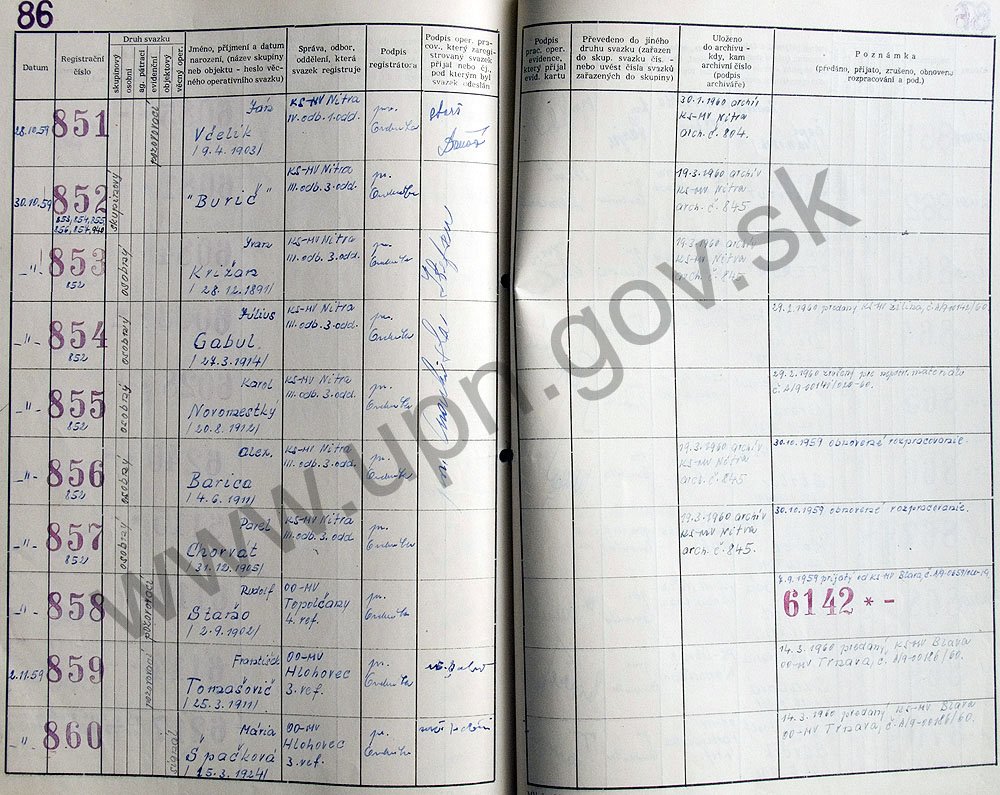 86
Datum
Registrační číslo
Druh svazku
skupinový
osobní
evidenční
objektový
Jméno, příjmení a datum
narození, (název skupiny
neb objektu - heslo věc-
ného operativního svazku)
Správa, odbor,
oddělení, která
svazek registruje
Podpis
registrátora
Podpis oper. pra-
cov., který zaregi-
strovaný svazek
přijal nebo čj.,
pod kterým byl
svazek odeslán
Podpis
prac. oper.
evidence,
který přijal
evid. kartu
Převedeno do jiného
druhu svazku (zařazen
do skup. svazku čís. -
nebo uvést čísla svazků
zařazených do skupiny)
Uloženo
do archivu -
kdy, kam
archivní číslo
(podpis
archiváře)
Poznámka
(předáno, přijato, zrušeno, obnoveno
rozpracování a pod.)
28.10.59
851
pozorovací
Ján
Včelík
/9.4.1903/
KS-MV Nitra
IV. odb. 1. odd.
30.1.1960 archív
KS-MV Nitra
arch. č. 804.
30.10.59
852
853, 854, 855,
856, 857, 940
skupinový
"Burič"
KS-MV Nitra
III. odb. 3. odd.
19.3.1960 archív
KS-MV Nitra
arch. č. 845
-"-
853
852
osobný
Ivan
Križan
/28.12.1891/
KS-MV Nitra
III. odb. 3. odd.
Štefan
19.3.1960 archív
KS-MV Nitra
arch. č. 845
-"-
854
852
osobný
Július
Gabul.
/27.3.1914/
KS-MV Nitra
III. odb. 3. odd.
29.2.1960 predaný KS-MV Žilina,
-"-
855
852
osobný
Karol
Novomestký
/20.8.1912/
KS-MV Nitra
III. odb. 3. odd.
29.2.1960 zničený pre
-"-
856
852
osobný
Alex.
Barica
/4.6.1911/
KS-MV Nitra
III. odb. 3. odd.
19.3.1960 archív
KS-MV Nitra
arch. č. 845
30.10.1959 obnovené rozpracovanie.
-"-
857
852
osobný
Pavel
Chorvát
/31.12.1905/
KS-MV Nitra
III. odb. 3. odd.
19.3.1960 archív
KS-MV Nitra
arch. č. 845.
30.10.1959 obnovené rozpracovanie.
-"-
858
pozorovací
Rudolf
Staržo
/2.9.1902/
OO-MV
Topoľčany
4. ref.
6142 * -
2.11.59
859
pozorovací
František
Tomašovič
/25.3.1911/
OO-MV
Hlohovec
3. ref.
14.3.1960 predaný KS-MV Blava
OO-MV Trnava, č. A/9-00186/60.
-"-
860
signál
Mária
Špačková
/15.3.1924/
OO-MV
Hlohovec
3. ref.
14.3.1960 predaný KS-MV Blava
OO-MV Trnava, č. A/9-00186/60.
www.upn.gov.sk